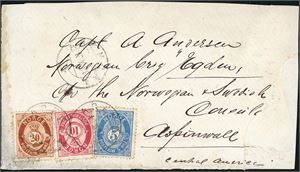 Capt A Andersen
Norwegian brig Egden,
c/o the Norwegian & Swedish
Consuls
Aspinwall
central america
NORGE NORGE NORGE
20 10 5